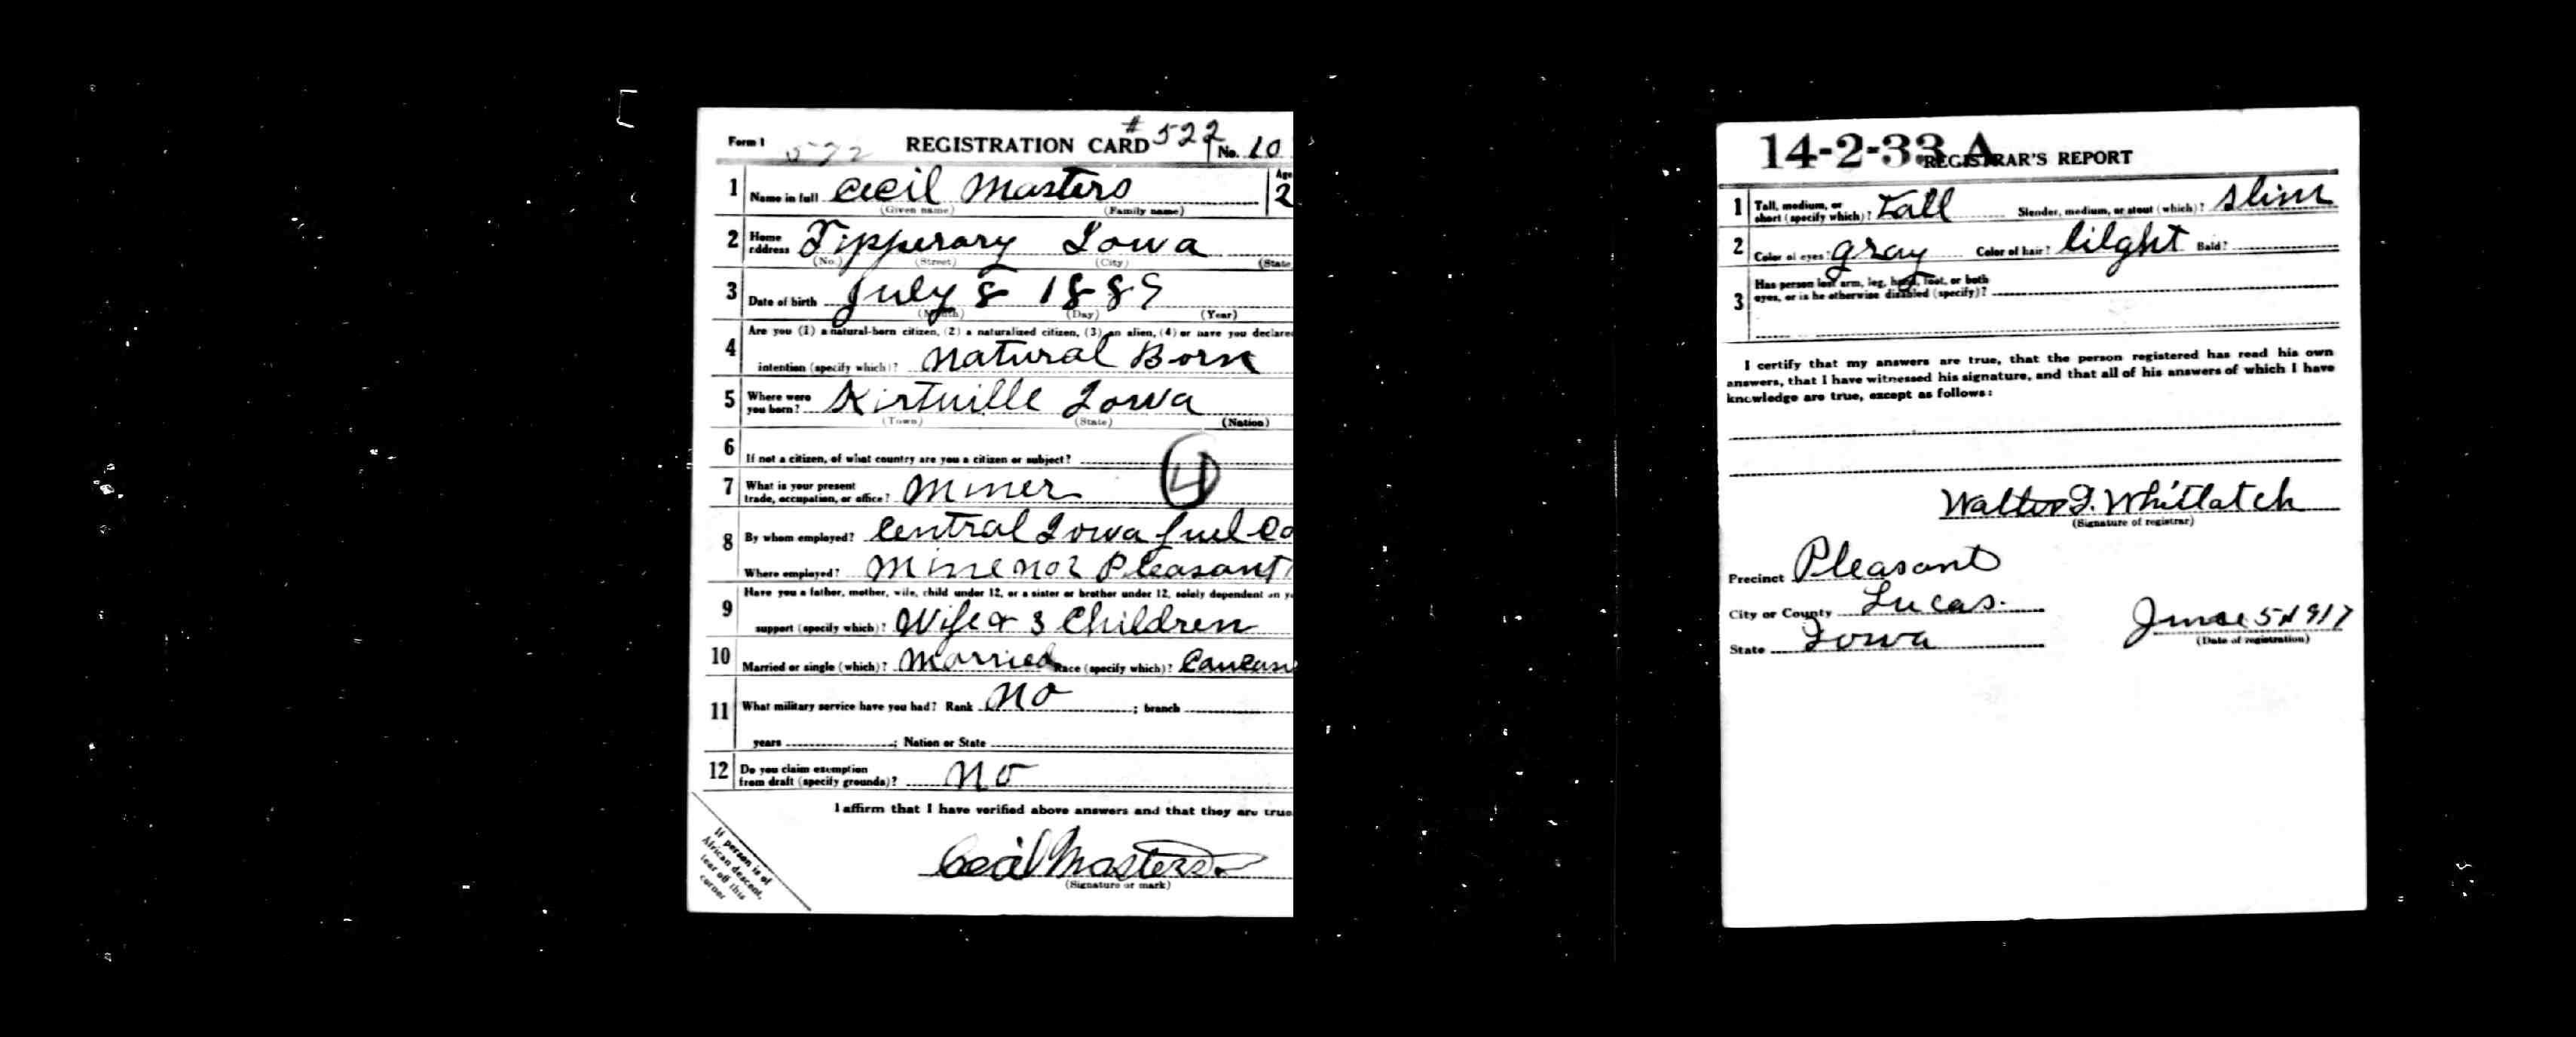 Form 1 522 REGISTRATION CARD # 522 No. 10
1 Name in full Cecil Masters Age 2
(Given name) (Family name)
2 Home address Tipperary Iowa
(No.) (Street) (City) (State
3 Date of birth July 8 1889
(Month) (Day) (Year)
4 Are you (1) a natural-born citizen, (2) a naturalized citizen, (3) an alien, (4) or have you declared
intention (specify which)? Natural Born
5 Where were you born? Kirtville Iowa
(Town) (State) (Nation)
6 If not a citizen, of what country are you a citizen or subject?
4
7 What is your present trade, occupation, or office? Miner
8 By whom employed? Central Iowa fuel Co
Where employed? Mine no 2 Pleasant
9 Have you a father, mother, wife, child under 12, or a sister or brother under 12, solely dependent on y
support (specify which)? Wife & 3 Children
10 Married or single (which)? Married Race (specify which)? Caucasi
11 What military service have you had? Rank no ; branch
years ; Nation or State
12 Do you claim exemption from draft (specify grounds)? no
I affirm that I have verified above answers and that they are true
Cecil Masters
(Signature or mark)
If person is of
African descent,
tear off this
corner
14-2-33 A REGISTRAR'S REPORT
1 Tall, medium, or short (specify which)? Tall Slender, medium, or stout (which)? slim
2 Color of eyes? gray Color of hair? lilght Bald?
3 Has person lost arm, leg, hand, foot, or both
eyes, or is he otherwise disabled (specify)?
I certify that my answers are true, that the person registered has read his own
answers, that I have witnessed his signature, and that all of his answers of which I have
knowledge are true, except as follows:
Walter I. Whitlatch
(Signature of registrar)
Precinct Pleasant
City or County Lucas.
State Iowa
June 5 1917
(Date of registration)